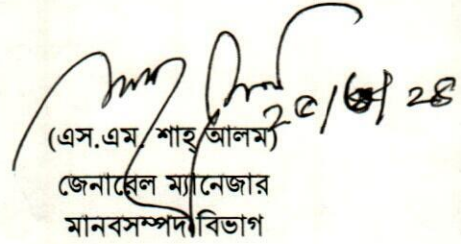 (এস.এম. শাহ্ আলম)
জেনারেল ম্যানেজার
মানবসম্পদ বিভাগ